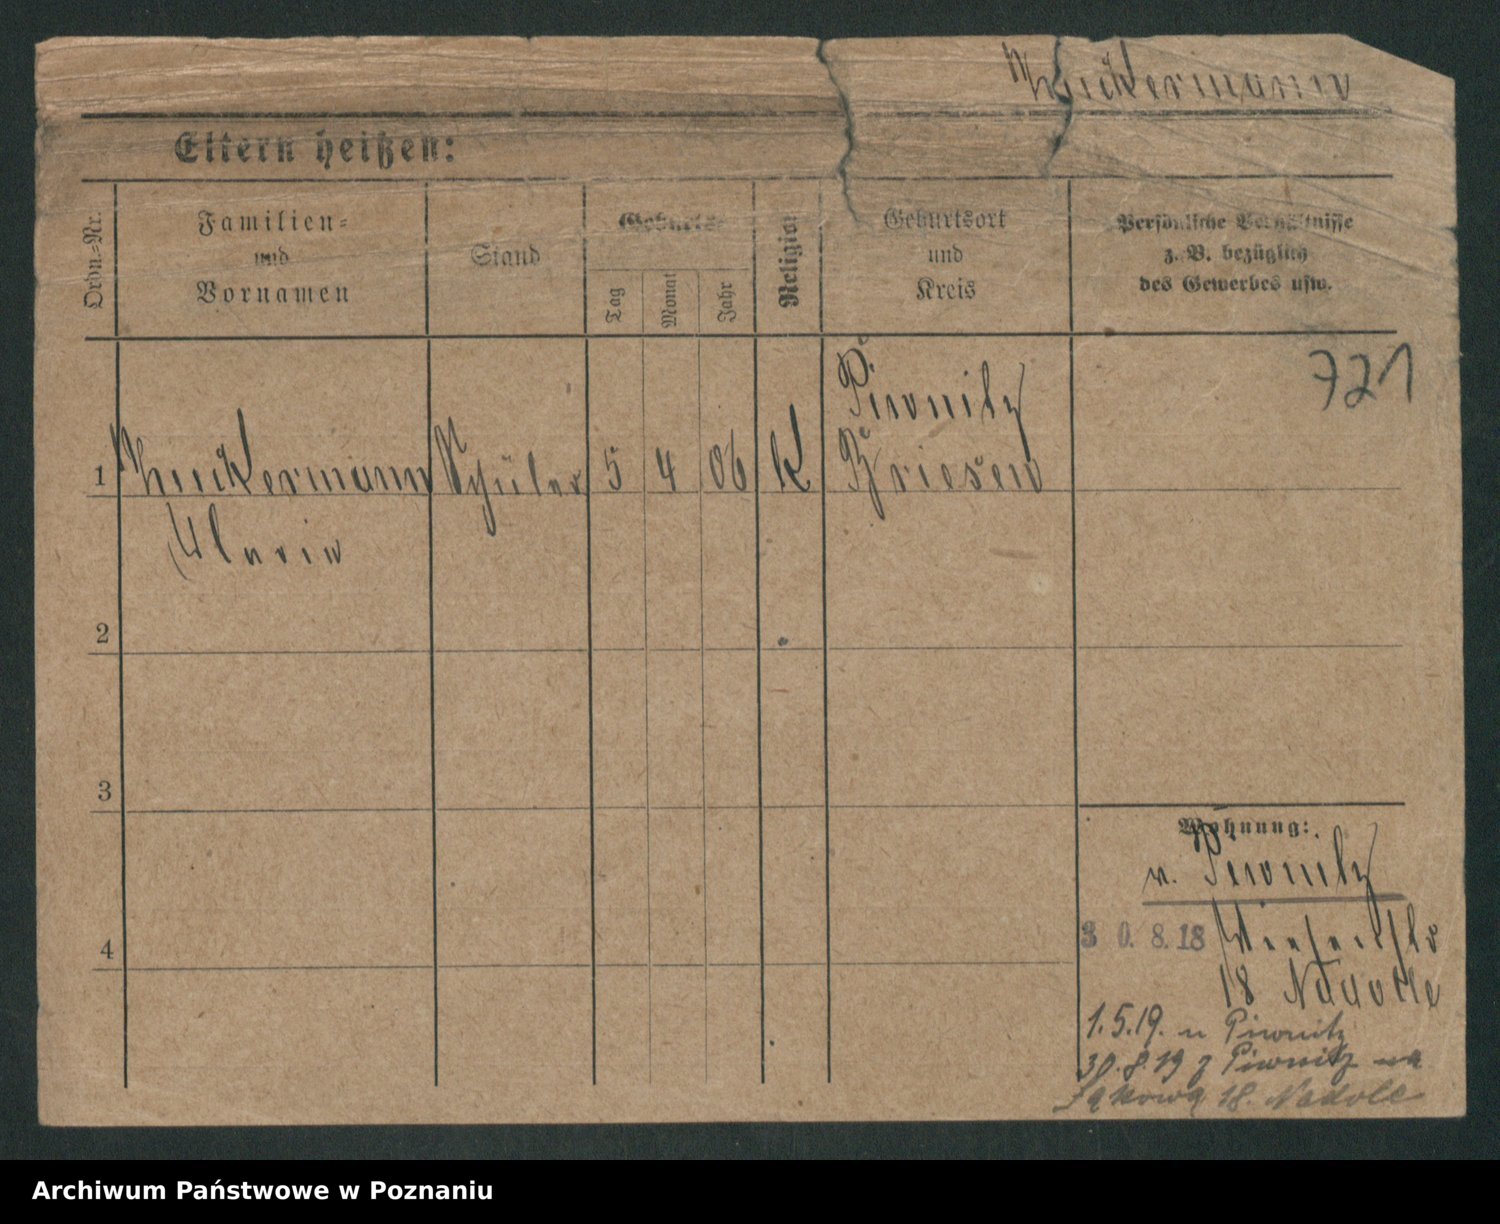 Muckermann
Eltern heißen:
Ordn.-Nr.
Familien-
und
Vornamen
Stand
Geburts-
Tag
Monat
Jahr
Religion
Geburtsort
und
Kreis
Persönliche Verhältnisse
z. B. bezüglich
des Gewerbes usw.
721
1
Muckermann Schüler 5 4 06 K Piwnitz
Briesen
2
3
4
Wohnung:
v. Piwnitz
30.8.18 Wiesenstr
18 Nadolle
1.5.19. n Piwnitz
30.8.19 z Piwnitz na
Łąkowa 18. Nadole
Archiwum Państwowe w Poznaniu